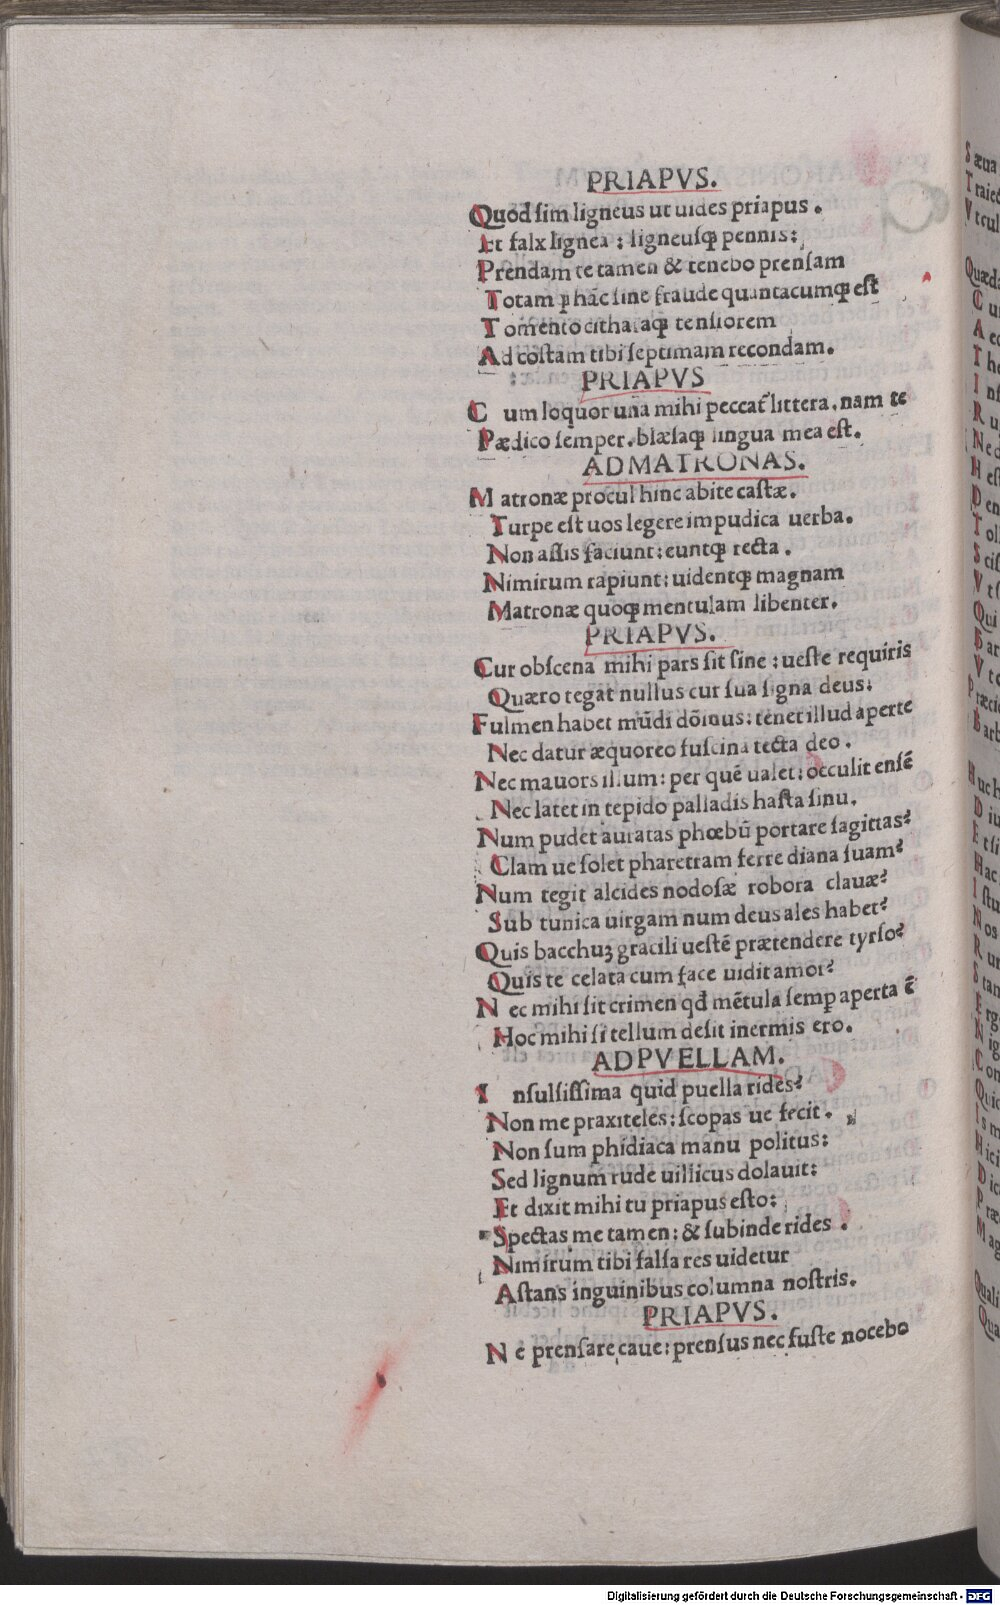 PRIAPVS.
Quod ſim ligneus ut uides priapus.
Et falx lignea: ligneuſqꝫ pennis:
Prendam te tamen & tenebo prenſam
Totam ꝑ hāc ſine fraude quantacumqꝫ eſt
Tomento citharaqꝫ tenſiorem
Ad coſtam tibi ſeptimam recondam.
PRIAPVS
C um loquor una mihi peccat᷑ littera. nam te
Pædico ſemper. blæſaqꝫ lingua mea eſt.
AD MATRONAS.
M atronæ procul hinc abite caſtæ.
Turpe eſt uos legere impudica uerba.
Non aſſis faciunt: euntqꝫ recta.
Nimirum rapiunt: uidentqꝫ magnam
Matronæ quoqꝫ mentulam libenter.
PRIAPVS.
Cur obſcena mihi pars ſit ſine: ueſte requiris
Quæro tegat nullus cur ſua ſigna deus:
Fulmen habet mūdi dōinus: tenet illud aperte
Nec datur æquoreo fuſcina tecta deo.
Nec mauors illum: per quē ualet: occulit enſē
Nec latet in tepido palladis haſta ſinu.
Num pudet auratas phœbū portare ſagittas?
Clam ue ſolet pharetram ferre diana ſuam?
Num tegit alcides nodoſæ robora clauæ?
Sub tunica uirgam num deus ales habet?
Quis bacchuꝫ gracili ueſtē prætendere tyrſo?
Quis te celata cum face uidit amor?
N ec mihi ſit crimen qđ mētula ſemꝑ aperta ē
Hoc mihi ſi tellum deſit inermis ero.
AD PVELLAM.
I nſulſiſſima quid puella rides?
Non me praxiteles: ſcopas ue fecit.
Non ſum phidiaca manu politus:
Sed lignum rude uillicus dolauit:
Et dixit mihi tu priapus eſto:
Spectas me tamen: & ſubinde rides.
Nimirum tibi falſa res uidetur
Aſtans inguinibus columna noſtris.
PRIAPVS.
N e prenſare caue: prenſus nec fuſte nocebo
Digitalisierung gefördert durch die Deutsche Forschungsgemeinschaft - DFG